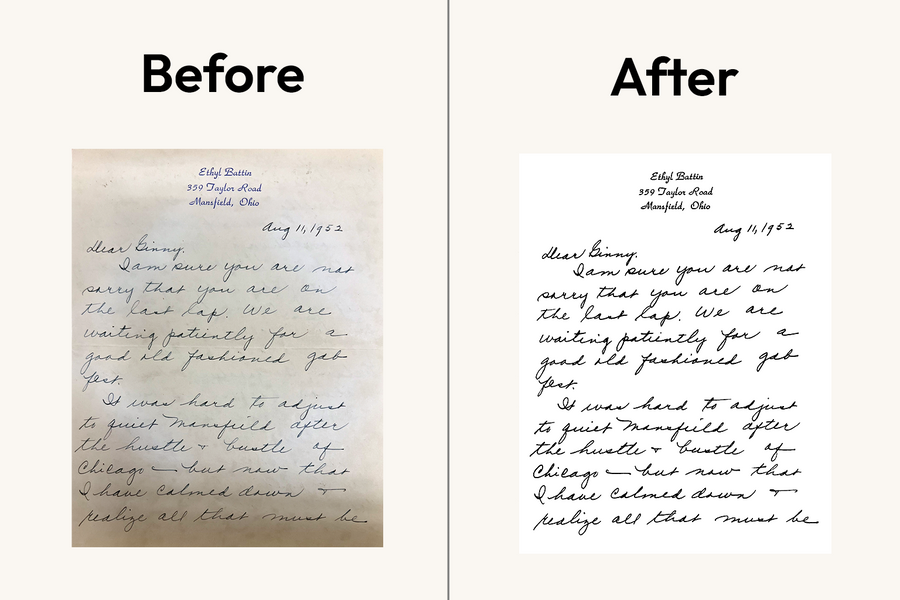 Before
Ethyl Battin
359 Taylor Road
Mansfield, Ohio
Aug 11, 1952
Dear Ginny.
I am sure you are not
sorry that you are on
the last lap. We are
waiting patiently for a
good old fashioned gab
fest.
It was hard to adjust
to quiet Mansfield after
the hustle + bustle of
Chicago — but now that
I have calmed down +
realize all that must be
After
Ethyl Battin
359 Taylor Road
Mansfield, Ohio
Aug 11, 1952
Dear Ginny.
I am sure you are not
sorry that you are on
the last lap. We are
waiting patiently for a
good old fashioned gab
fest.
It was hard to adjust
to quiet Mansfield after
the hustle + bustle of
Chicago — but now that
I have calmed down +
realize all that must be